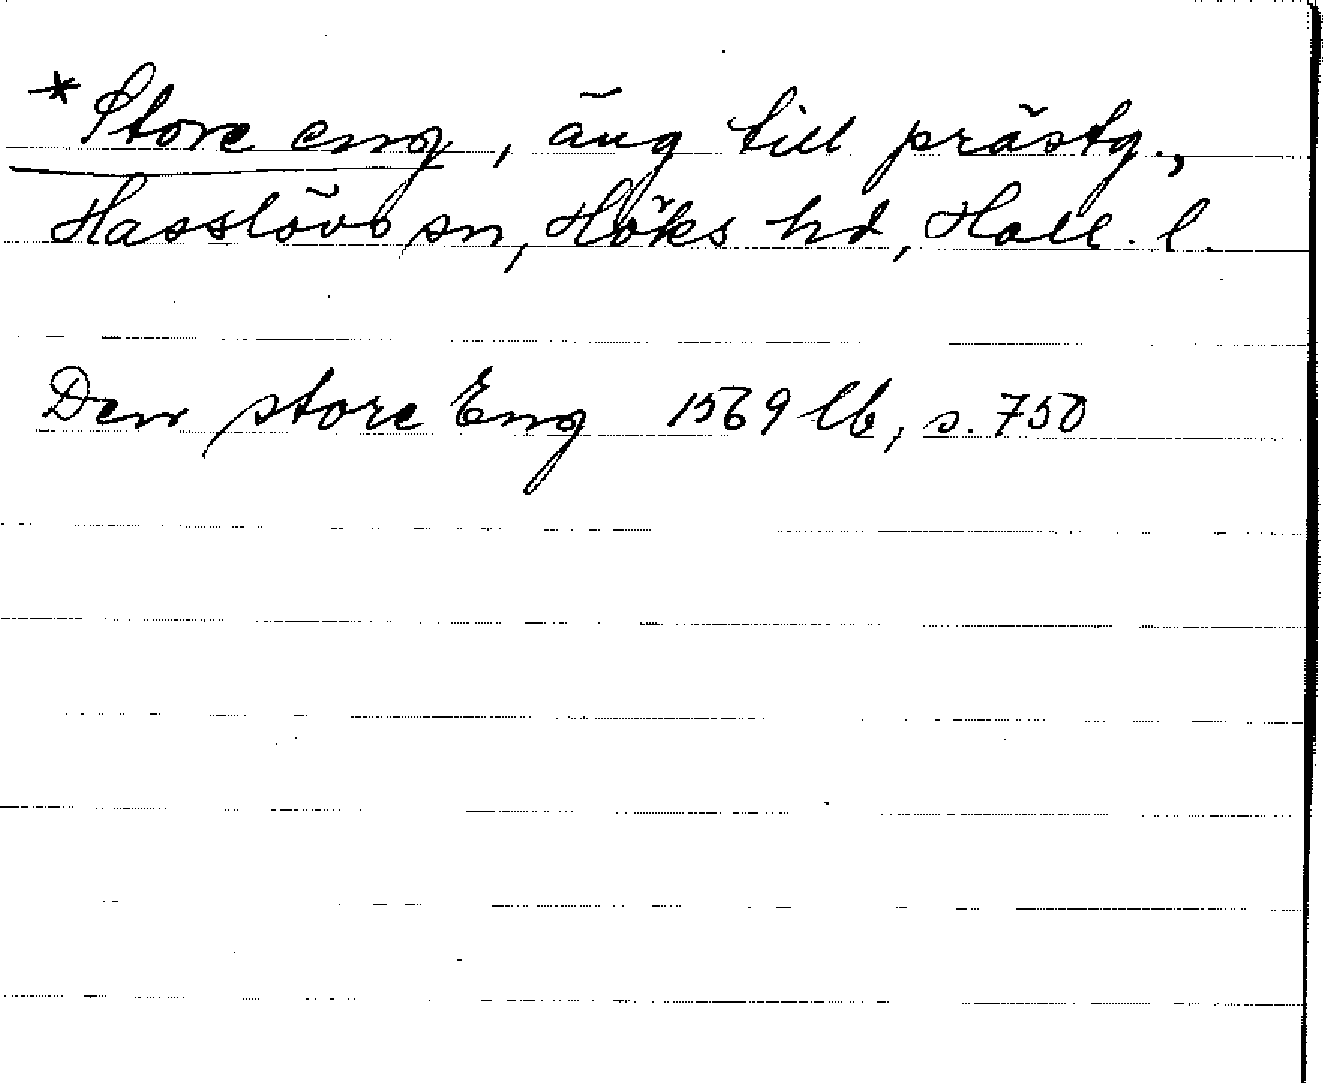 *Store eng, äng till prästg.,
Hasslövs sn, Höks hd, Hall. l.
Den store Eng 1569 lb, s. 750